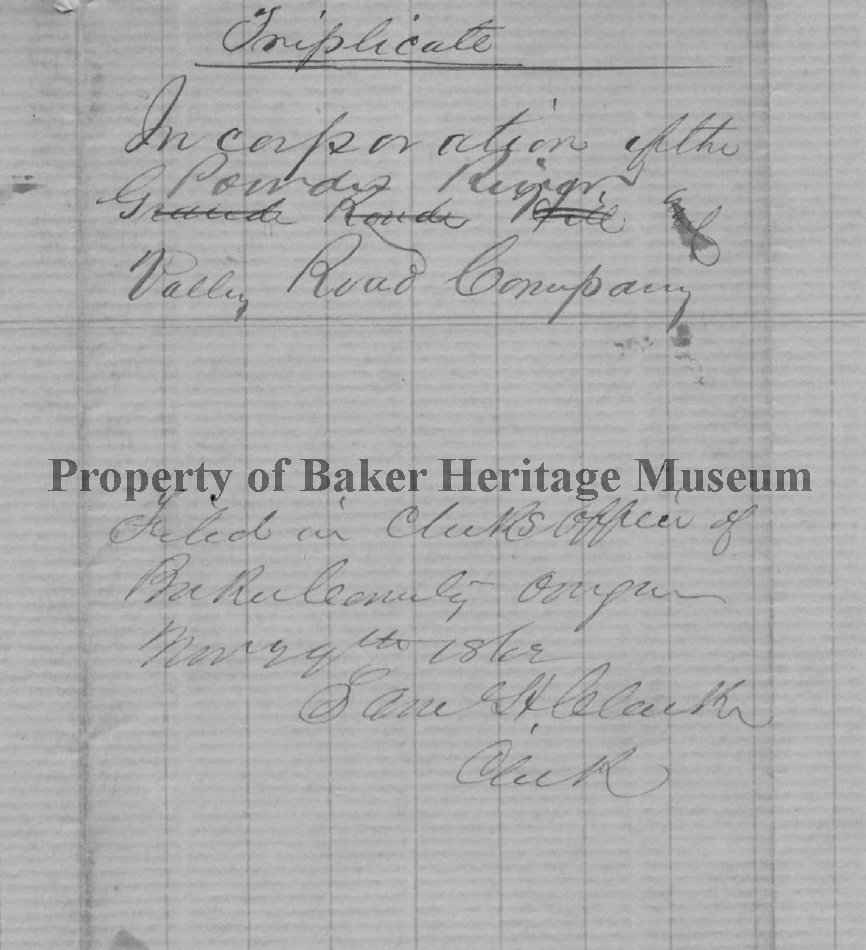 Triplicate
Incorporation of the
Powder River
Grande Ronde
Valley Road Company
Property of Baker Heritage Museum
Filed in Clerks Office of
Baker County Oregon
Nov 29th 1862
Sam H. Clarke
Clerk